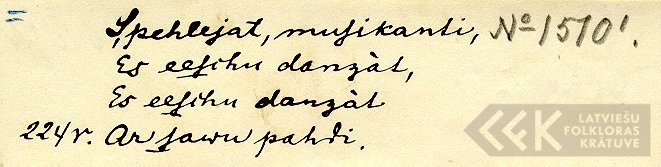 Spehlejat, musikanti, № 1510¹.
Es eesihu danzàt,
Es eesihu danzàt
224r. Ar sawu pahdi.
LATVIEŠU
FOLKLORAS
KRĀTUVE